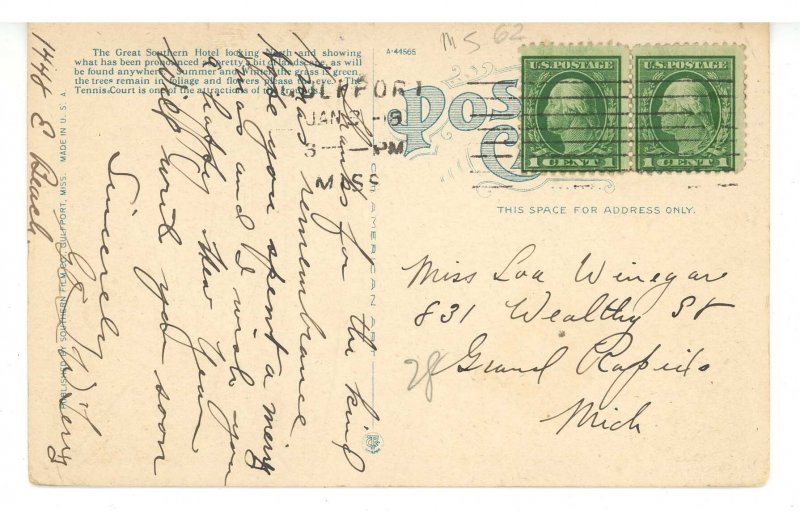 The Great Southern Hotel looking North and showing
what has been pronounced a pretty bit of landscape, as will
be found anywhere. Summer and winter the grass is green,
the trees remain in foliage and flowers please the eye. The
Tennis Court is one of the attractions of the grounds.
A-44565
MS 62
GULFPORT
JAN 3
3 - PM
MISS
POST CARD
U.S. POSTAGE
1 CENT 1
U.S. POSTAGE
1 CENT 1
THIS SPACE FOR ADDRESS ONLY.
Miss Loa Winegar
831 Wealthy St
Grand Rapids
Mich
28
Thanks for the kind
Xmas remembrance
Hope you spent a merry
Xmas and I wish you
a happy New Year
Will write you soon
Sincerely
1448 E Beach.
PUBLISHED BY SOUTHERN FILM CO. GULFPORT, MISS. MADE IN U. S. A.
AMERICAN ART